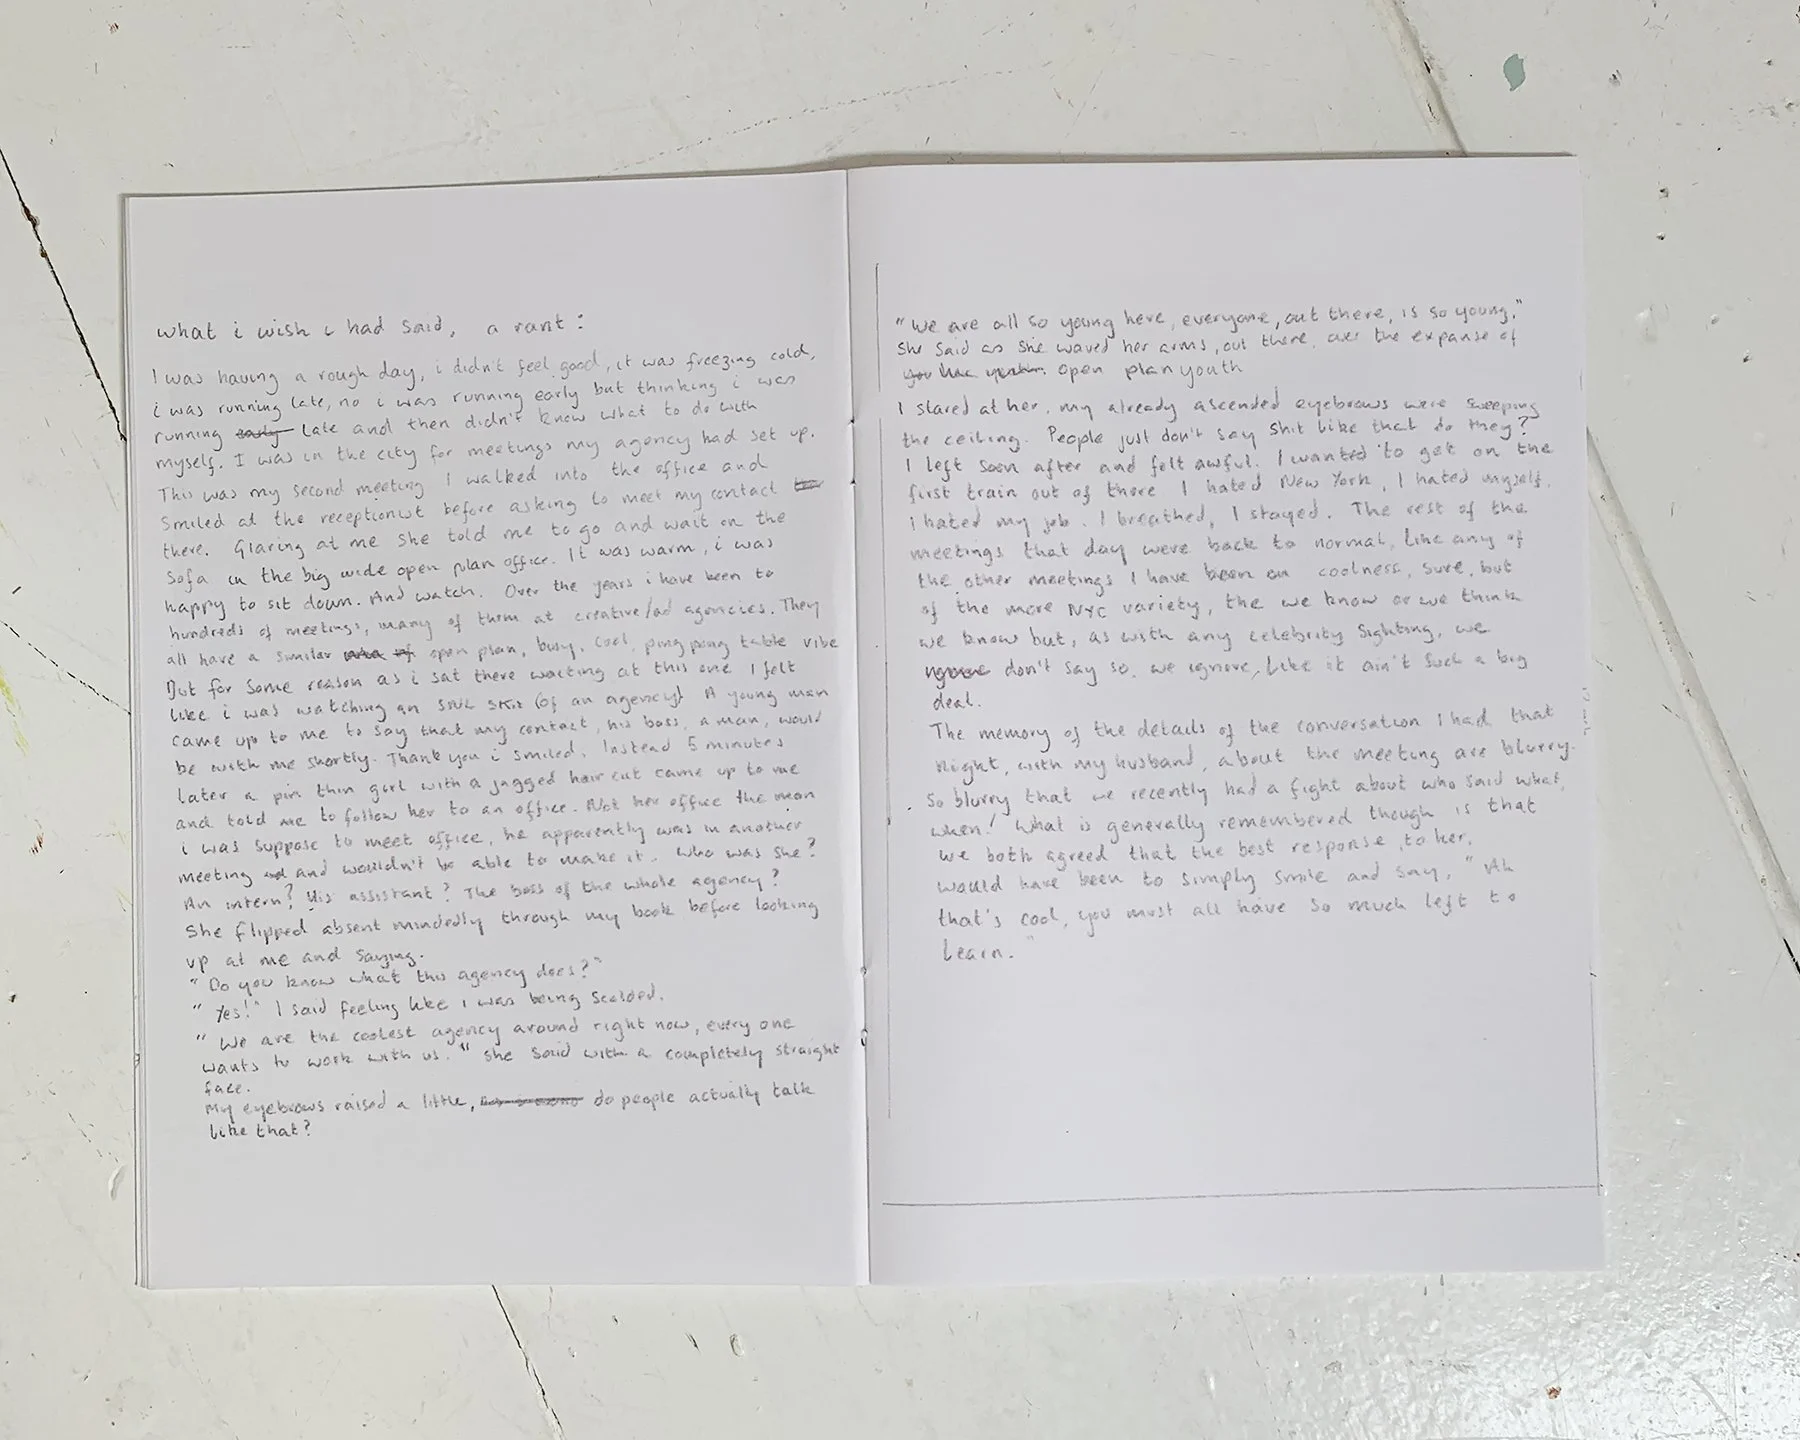 what i wish i had said, a rant:
I was having a rough day, i didn't feel good, it was freezing cold,
i was running late, no i was running early but thinking i was
running early late and then didn't know what to do with
myself. I was in the city for meetings my agency had set up.
This was my second meeting I walked into the office and
Smiled at the receptionist before asking to meet my contact
there. Glaring at me she told me to go and wait on the
Sofa in the big wide open plan office. It was warm, i was
happy to sit down. And watch. Over the years i have been to
hundreds of meetings, many of them at creative/ad agencies. They
all have a similar open plan, busy, cool, pingpong table vibe
But for some reason as i sat there waiting at this one I felt
like i was watching an SNL skit (of an agency). A young man
came up to me to say that my contact, his boss, a man, would
be with me shortly. Thank you i smiled. Instead 5 minutes
later a pin thin girl with a jagged hair cut came up to me
and told me to follow her to an office. Not her office the man
i was suppose to meet office, he apparently was in another
meeting and and wouldn't be able to make it. Who was she?
An intern? His assistant? The boss of the whole agency?
She flipped absent mindedly through my book before looking
up at me and saying.
"Do you know what this agency does?"
"Yes!" I said feeling like i was being scolded.
"We are the coolest agency around right now, every one
wants to work with us." she said with a completely straight
face.
My eyebrows raised a little, do people actually talk
like that?
"We are all so young here, everyone, out there, is so young."
She said as she waved her arms, out there, over the expanse of
open plan youth
I stared at her, my already ascended eyebrows were sweeping
the ceiling. People just don't say shit like that do they?
I left soon after and felt awful. I wanted to get on the
first train out of there. I hated New York, I hated myself,
i hated my job. I breathed, I stayed. The rest of the
meetings that day were back to normal, like any of
the other meetings I have been on coolness, sure, but
of the more NYC variety, the we know or we think
we know but, as with any celebrity sighting, we
don't say so, we ignore, like it ain't such a big
deal.
The memory of the details of the conversation I had that
night, with my husband, about the meeting are blurry.
So blurry that we recently had a fight about who said what,
when! What is generally remembered though is that
we both agreed that the best response, to her,
would have been to simply smile and say, "Ah
that's cool, you must all have so much left to
learn."